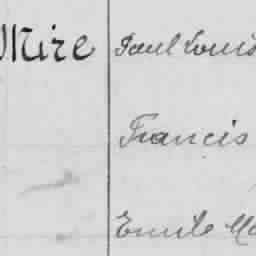 Mire Paul Louis
Francis
Emile